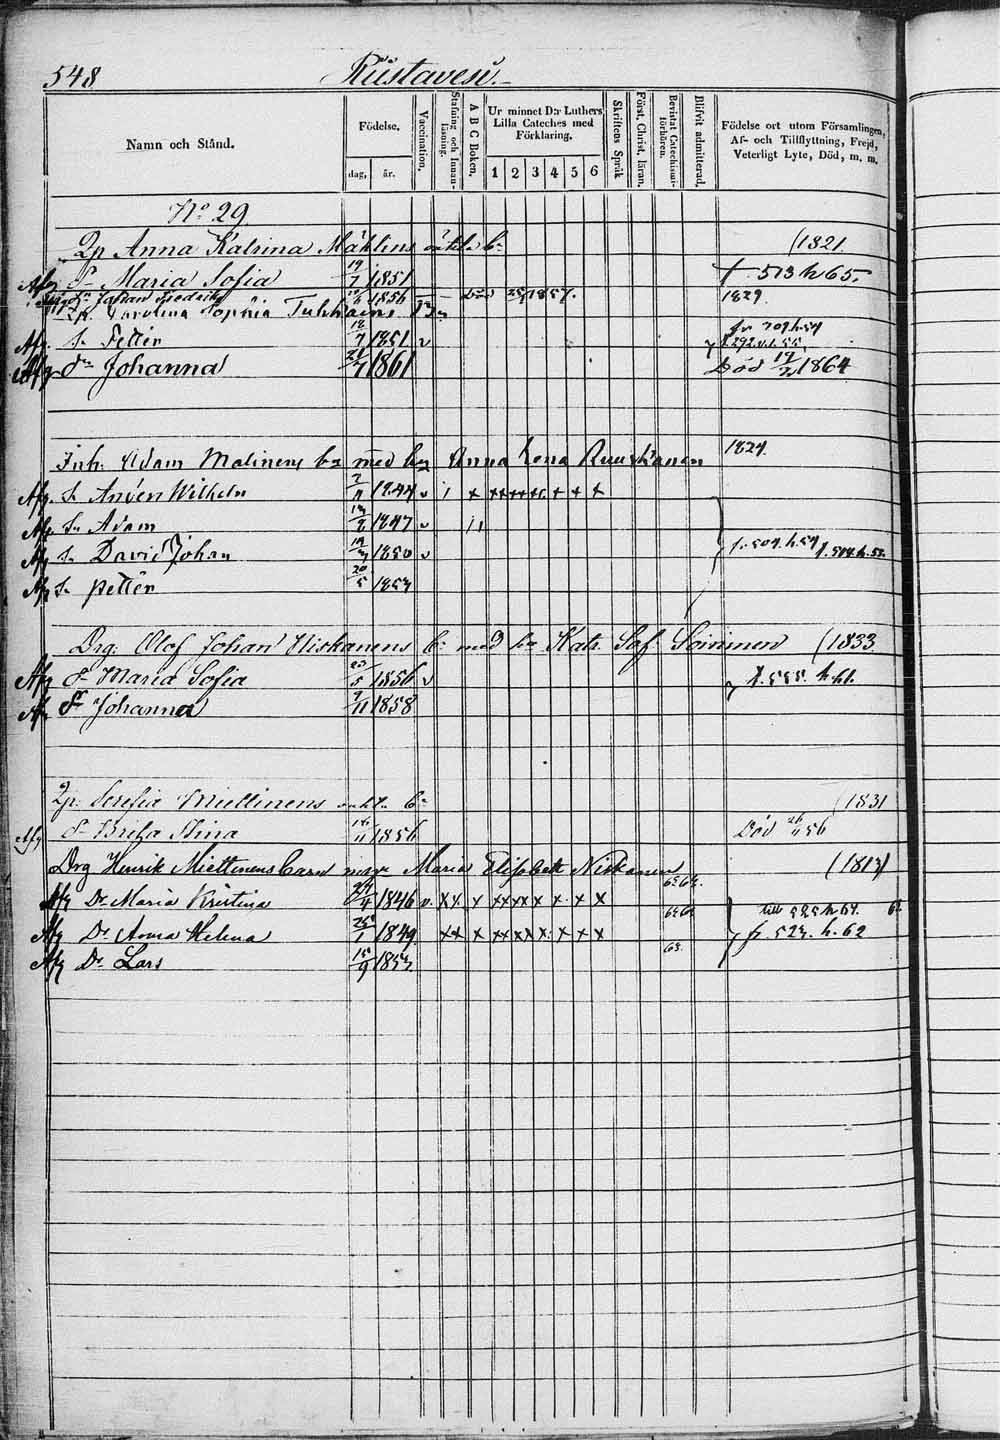 548 Rüstavesi.
Namn och Stånd.
Födelse.
dag, år.
Vaccination.
Stafning och Innanläsning.
A B C Boken.
Ur minnet D:r Luthers Lilla Cateches med Förklaring.
1 2 3 4 5 6
Skriftens Språk
Först. Christ. läran.
Bevistat Catechismiförhören.
Blifvit admitterad.
Födelse ort utom Församlingen, Af- och Tillflyttning, Frejd, Veterligt Lyte, Död, m. m.
No 29
Qp Anna Katrina Mählins oäkta b. (1821
Afg Dr Maria Sofia 19/7 1851 f. 513 h 65.
Johan Fredrik 1856 Död 1857.
Qp Carolina Sophia 1829
Afg. Sn Petter 18/7 1851 v fr 709 h 54
f. 292
Afg Dr Johanna 21/7 1861 Död 1864
Inh. Adam Malinens bn med hu Anna Lena Ruuskanen 1824.
Afg. Sn Anders Wilhelm 1844 v 1 x xx xx x x x x
Afg Sn Adam 1847 v
Afg Sn David Johan 19 1850 v fr. 504. h. 54 f. 514. h. 55.
Afg Sn Petter 20/5 1853
Drg. Olof Johan Hiskanens b. med hu Katr. Sof. Soininen (1833
Afg Dr Maria Sofia /5 1856 v f. 555. h.
Afg Dr Johanna 9/11 1858
Qp. Serefia Miettinens oäkta b. (1831
Afg Dr Brita Stina 16/11 1856 Död 56
Drg Henrik Miettinens barn med Maria Elisabeth Niskanen (1813)
Afg Dr Maria Kristina /4 1846 v. xx x xx xx x x x x till 525 h 64.
Afg Dr Anna Helena /1 1849 xx x xx xx x x x x fr. 523. h. 62
Afg Dr Lars 15/9 1853 63.